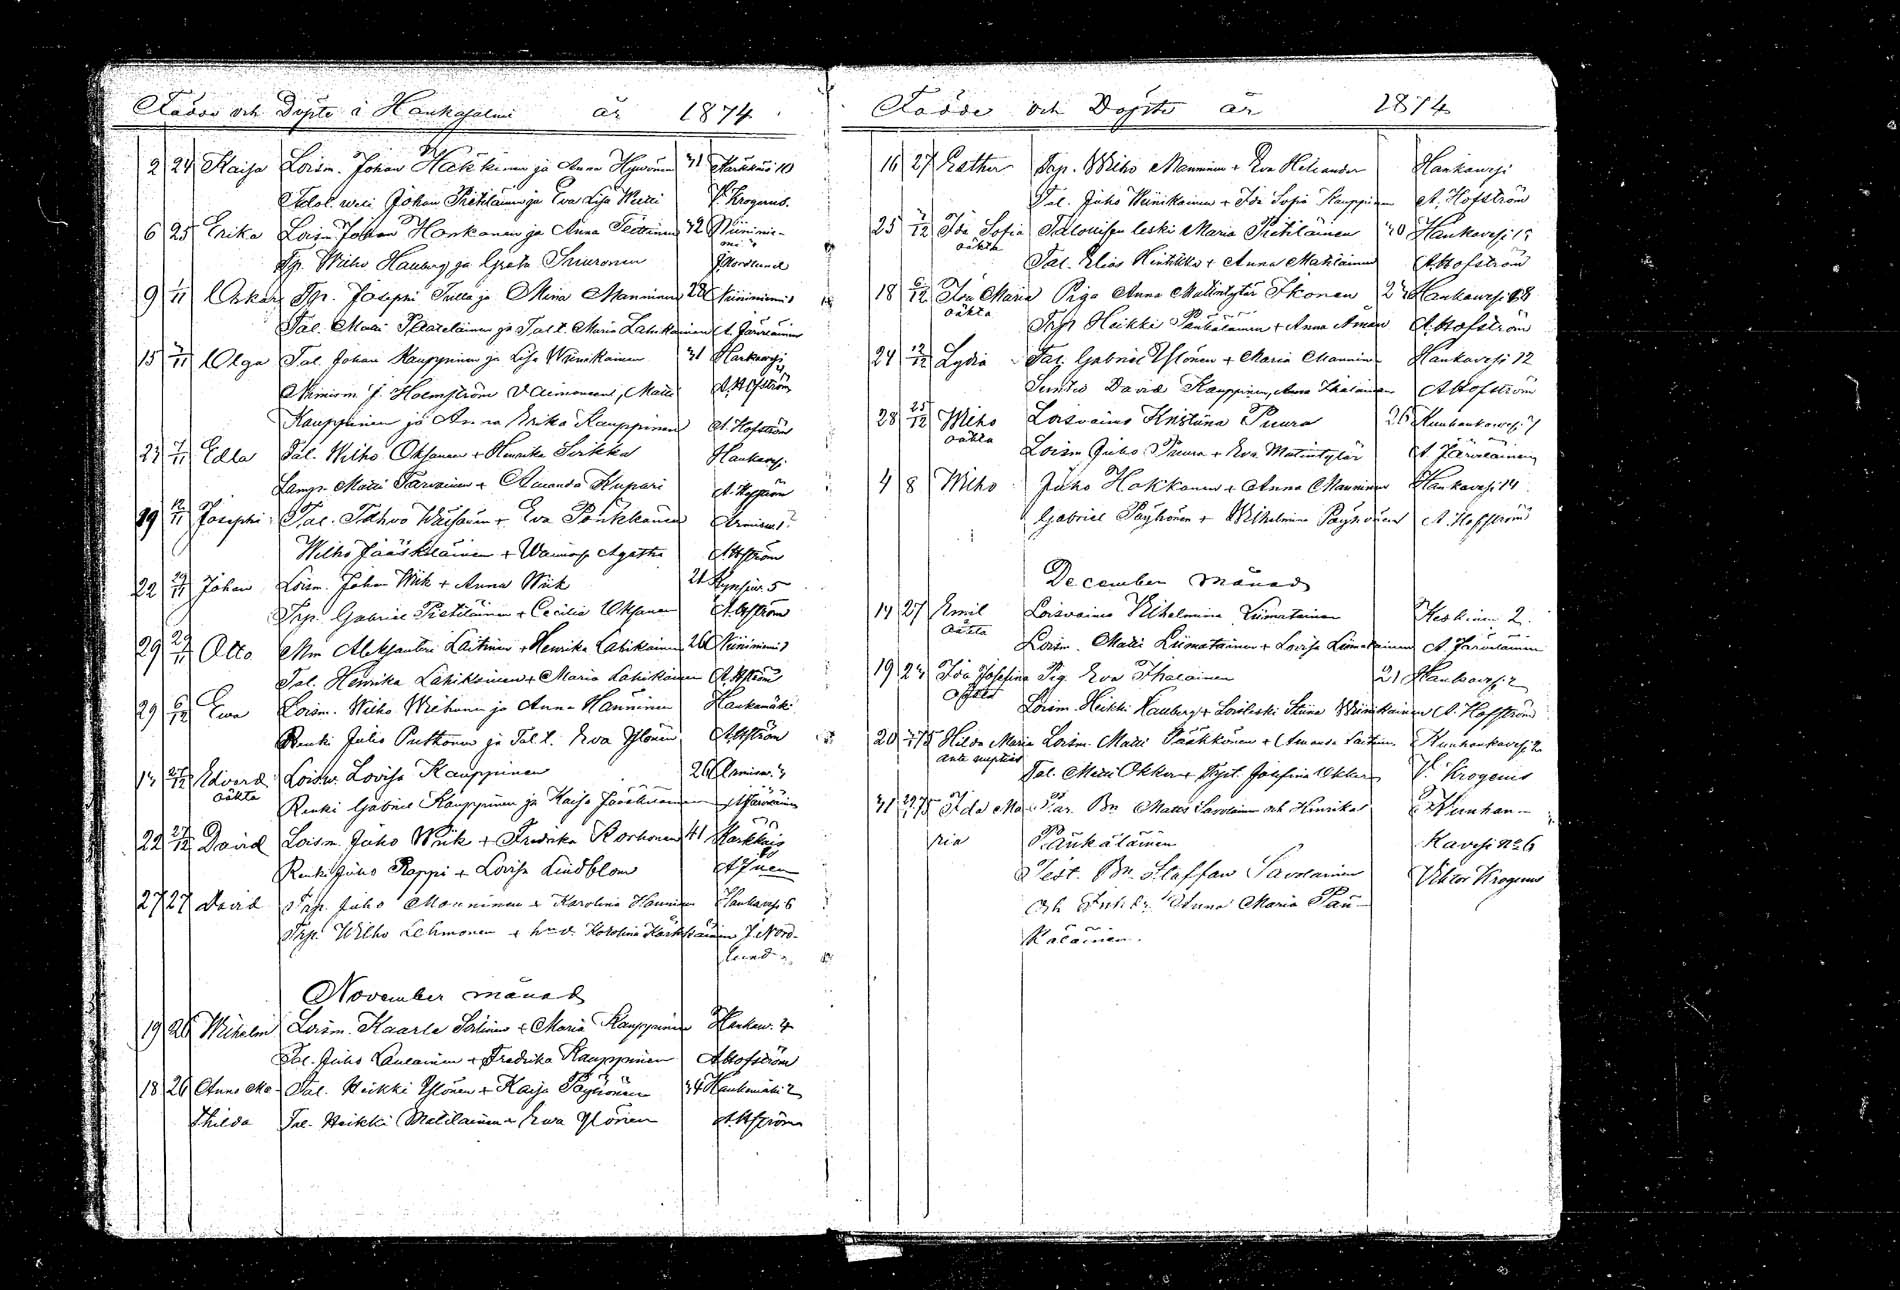 Födde och Döpte i Hankasalmi år 1874
2 24 Kaisa Loism. Johan Häkkinen ja Anna Hyvönen 31 Markkais 10
Johan Pietiläinen ja Eva Lisa V. Krogerus.
6 25 Erika Loism Johan Honkanen ja Anna Teittinen 32 Niininie-
mi
Tp. Wilho Hauberg ja Greta Siuronen J. Nordlund
9 1/11 Oskar Tp. Josephi Tulla ja Mina Manninen 28 Niininiemi
Tal. Matti Paateläinen ja Tal. t. Maria Lahikainen A. Järveläinen
15 /11 Olga Tal. Johan Kauppinen ja Lisa Wiinikainen 31 Hankavesi
Nimism. J. Holmström Vaimonensa, Matti A. Hofström
Kauppinen ja Anna Erika Kauppinen A. Hofström
23 /11 Edla Tal. Wilho Oksanen + Henrika Sirkka Hankaves.
Lamp. Matti Tarvainen + Amanda Kupari A. Hofström
19 12/11 Josephi Tal. Tahvo Väisänen + Eva Pönkkänen Armisv.
Wilho Jääskeläinen + Agatha A. Hofström
22 29/11 Johan Loism. Johan Wiik + Anna Wiik 21 Kynsiv. 5
Trp. Gabriel Pietiläinen + Cecilia Oksanen A. Hofström
29 29/11 Otto Mm Aleksanteri Laitinen + Henrika Lahikainen 26 Niininiemi
Tal. Henrika Lahikainen + Maria Lahikainen A. Hofström
29 6/12 Ewa Loism. Wilho Wiehunen ja Anna Hänninen Hankamäki
Renki Juho Puttonen ja Tal. t. Eva Ylönen A. Hofström
13 27/12 Edvard Loisv. Lovisa Kauppinen 26 Armisv. 3
oäkta Renki Gabriel Kauppinen ja Kaisa A. Järveläinen
22 27/12 David Loism. Juho Wiik + Fredrika Korhonen 41 Markkais
Renki Juho Rappi + Lovisa Lindblom
27 27 David Trp. Juho Manninen + Karolina Hänninen Hankaves. 6
Trp. Wilho Lehmonen + Karolina Kärkkäinen J. Nord-
lund
November månad
19 26 Wilhelmi Loism. Kaarle + Maria Kauppinen Hankav. 4
Tal. Juho Laulainen + Fredrika Kauppinen A. Hofström
18 26 Anna Ma- Tal. Heikki Ylönen + Kaisa Pöyhönen 34 Hankamäki 2
thilda Tal. Heikki Matilainen + Ewa Ylönen A. Hofström
Födde och Döpte år 1874
16 27 Esther Trp. Wilho Manninen + Eva Helander Hankavesi
Tal. Juho Wiinikainen + Ida Sofia Kauppinen A. Hofström
25 /12 Ida Sofia Talouisen leski Maria Pietiläinen 40 Hankavesi 15
oäkta Tal. Elias Hintikka + Anna Matilainen A. Hofström
18 6/12 Ida Maria Piga Anna Matintytär Ikonen 23 Hankavesi 18
oäkta Trp Heikki Pänkäläinen + Anna Åman A. Hofström
24 12/12 Lydia Tal. Gabriel Ylönen + Maria Manninen Hankavesi 12
Suntio David Kauppinen, Anna Ihalainen A. Hofström
28 25/12 Wilho Loisvaimo Kristiina Puura 26 Kuuhankaves. 7
oäkta Loism Juho Puura + Eva Matintytär A Järveläinen
4 8 Wilho Juho Hokkanen + Anna Manninen Hankavesi 14
Gabriel Pöyhönen + Wilhelmina Pöyhönen A. Hofström
December månad
14 27 Emil Loisvaimo Wilhelmina Liimatainen Keskinen 2.
oäkta Loism. Matti Liimatainen + Lovisa Liimatainen A. Järveläinen
19 27 Ida Josefina Pig. Eva Ihalainen 21 Hankaves. 2
oäkta Loism. Heikki Hauberg + Loisleski Stiina Wiinikainen A. Hofström
20 /1 75 Hilda Maria Loism. Matti Pääkkönen + Amanda Laitinen Kuuhankavesi 2
ante nuptias Tal. Matti Okker + Tyst. Josefina Okker V. Krogerus
31 29/1 75 Ida Ma- Par. Bn Matts Savolainen och Henrika Kuuhan-
ria Pänkäläinen kavesi no 6
Test. Bn. Staffan Savolainen Viktor Krogerus
och Anna Maria Pän-
käläinen.